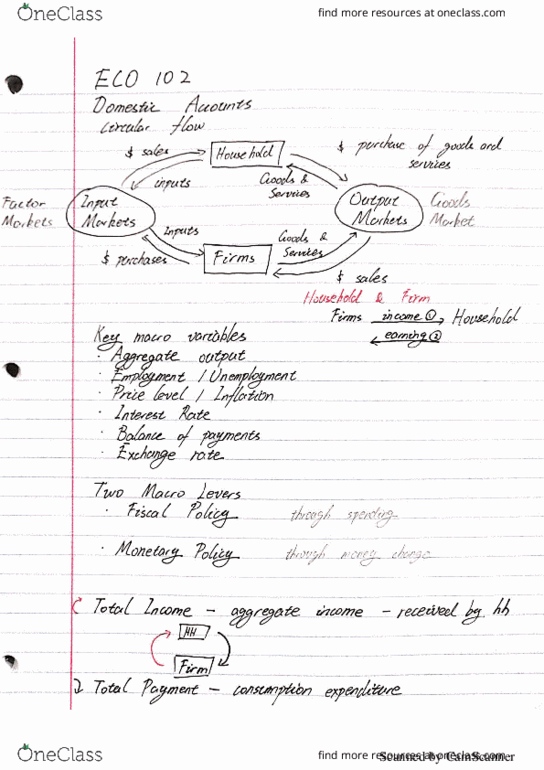 OneClass
find more resources at oneclass.com
ECO 102
Domestic Accounts
Circular flow
$ sales
Household
$ purchase of goods and
services
inputs
Goods &
Services
Factor
Markets
Input
Markets
Output
Markets
Goods
Market
Inputs
Goods &
Services
$ purchases
Firms
$ sales
Household & Firm
Firms income ① Household
earning ②
Key macro variables
· Aggregate output
· Employment / Unemployment
· Price level / Inflation
· Interest Rate
· Balance of payments
· Exchange rate
Two Macro Levers
· Fiscal Policy through spending
· Monetary Policy through money change
Total Income – aggregate income – received by hh
HH
Firm
Total Payment – consumption expenditure
OneClass
find more resources at oneclass.com
Scanned by CamScanner